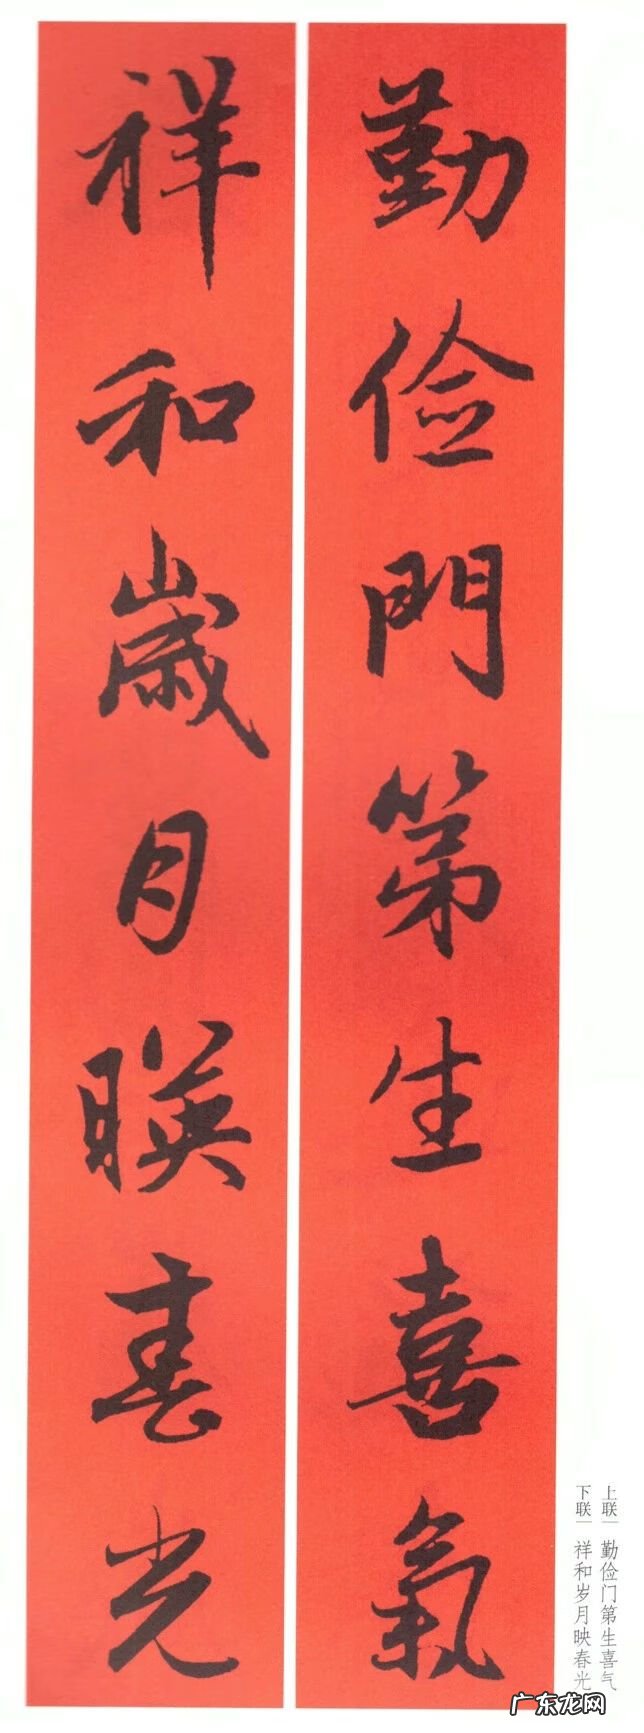 勤俭門第生喜氣
祥和歲月暎春光
上联 勤俭门第生喜气
下联 祥和岁月映春光
广东龙网